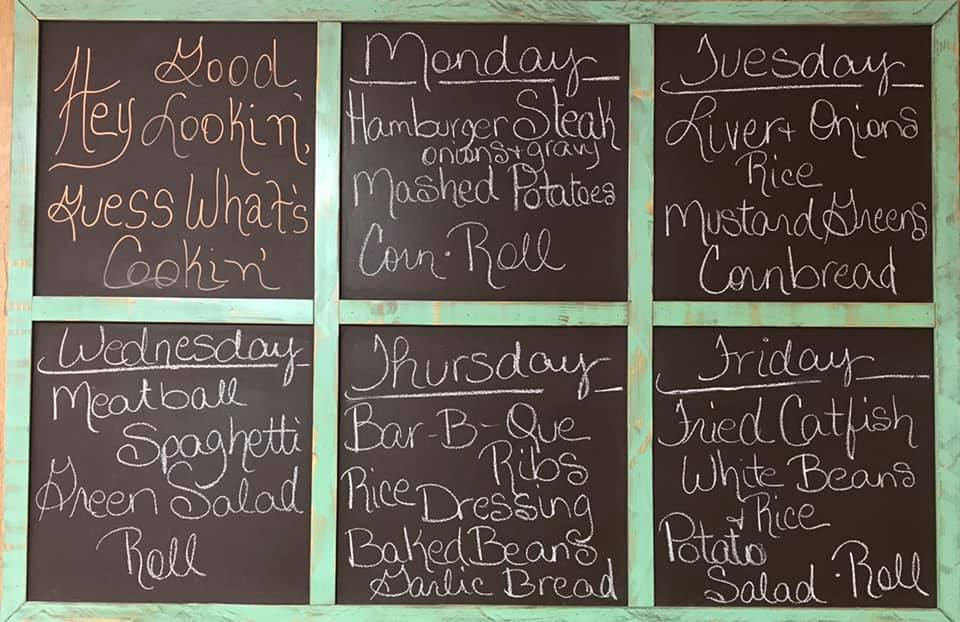 Hey Good
Lookin',
Guess What's
Cookin'
Monday
Hamburger Steak
onions + gravy
Mashed Potatoes
Corn · Roll
Tuesday
Liver + Onions
Rice
Mustard Greens
Cornbread
Wednesday
Meatball
Spaghetti
Green Salad
Roll
Thursday
Bar-B-Que
Ribs
Rice Dressing
Baked Beans
Garlic Bread
Friday
Fried Catfish
White Beans
+ Rice
Potato
Salad · Roll